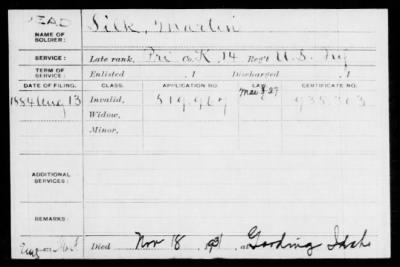 DEAD
NAME OF SOLDIER: Silk, Martin
SERVICE: Late rank, Pri Co. K, 14 Reg't U.S. Inf
TERM OF SERVICE: Enlisted , 1 Discharged , 1
DATE OF FILING. CLASS. APPLICATION NO. LAW. CERTIFICATE NO.
1884 Aug 13 Invalid, 519,967 935303
Widow,
Minor,
ADDITIONAL SERVICES:
REMARKS:
Died Nov 18, 1931 at Gooding Idaho